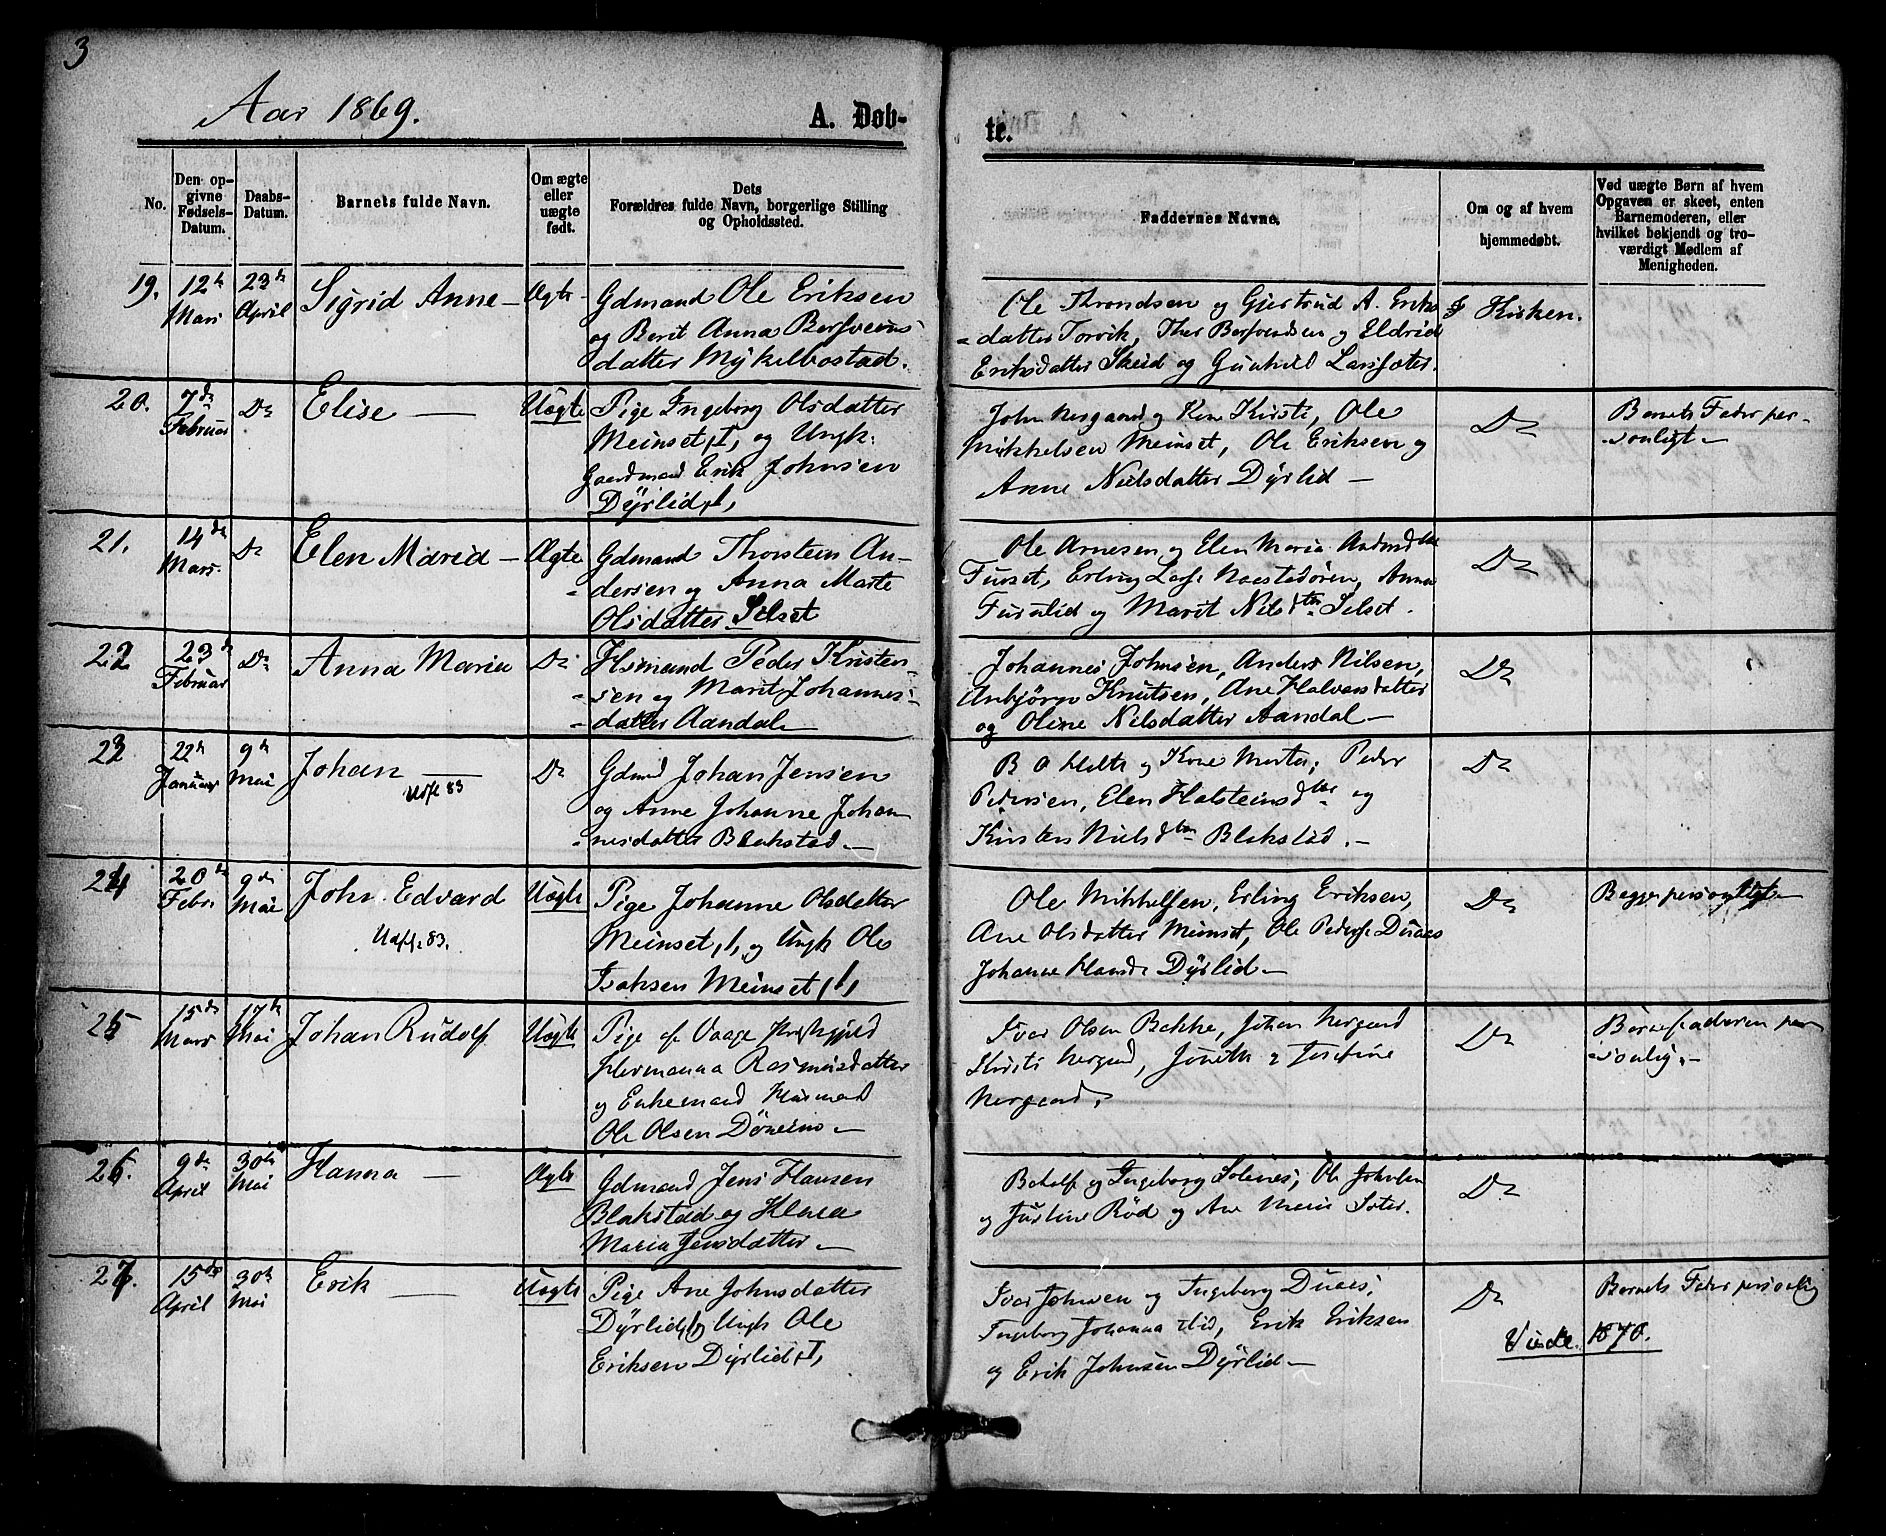 3
Aar 1869.
A. Døb-
te.
No.
Den op-
givne
Fødsels-
Datum.
Daabs-
Datum.
Barnets fulde Navn.
Om ægte
eller
uægte
født.
Dets
Forældres fulde Navn, borgerlige Stilling
og Opholdssted.
Faddernes Navne.
Om og af hvem
hjemmedøbt.
Ved uægte Børn af hvem
Opgaven er skeet, enten
Barnemoderen, eller
hvilket bekjendt og tro-
værdigt Medlem af
Menigheden.
19.
12te
Mars
23de
April
Sigrid Anne
Ægte
Gdmand Ole Eriksen
og Berit Anna Bersveins-
datter Mykelbostad.
Ole Throndsen og Gjertrud A. Eriks
datter Torvik, Ther Bersvendsen og Eldrid
Eriksdatter Skeid og Gunhild Larssæter.
I Kirken.
20.
7de
Februar
Do
Elise
Uægte
Pige Ingeborg Olsdatter
Meinset, I, og Ungk.
Gaardmand Erik Johnsen
Dyrlid, 1,
John Nergaard og Kone Kirsti, Ole
Mikkelsen Meinset, Ole Eriksen og
Anne Nielsdatter Dyrlid
Do
Barnets Fader per-
sonligt
21.
14de
Mars.
Do
Elen Maria
Ægte
Gdmand Thorstein An-
dersen og Anna Marte
Olsdatter Selset
Ole Arnesen og Elen Maria
Furset, Erling Larss. Naestadøren, Anna
Furulid og Marit Nilsdtr Selset.
Do
22
23de
Februar
Do
Anna Maria
Do
Hsmand Peder Kristen-
sen og Marit Johannes-
datter Aandal
Johannes Johnsen, Anders Nilsen,
Anbjørn Knutsen, Ane Halvorsdatter
og Oline Nilsdatter Aandal
Do
23
22de
Januar
9de
Mai
Johan
83
Do
Gdmd Johan Jensen
og Anne Johanne Johan-
nesdatter Blakstad
B O Helth og Kone Marta, Peder
Pedersen, Elen Halsteinsdtr og
Kirsten Nielsdtr Blakstad.
Do
24
20de
Febr.
9de
Mai
John Edvard
83.
Uægte
Pige Johanne Olsdatter
Meinset, 1, og Ungk Ole
Isaksen Meinset, 1,
Ole Mikkelsen, Erling Eriksen,
Ane Olsdatter Meinset, Ole Pederss. Duaas
Johanne Dyrlid
Do
Begge personligt
25
15de
Mars
17de
Mai
Johan Rudolf
Uægte
Pige af Vaage
Hermanna Rasmusdatter
og Enkemand Husmand
Ole Olsen Døveimo
Ivar Olsen Bakke, Johan Nergaard
Kirsti Nergaard, Jonetta og Josefine
Nergaard.
Do
Barnefaderen per
sonlig.
26.
9de
April
30te
Mai
Hanna
Ægte
Gdmand Jens Hansen
Blakstad og Klara
Maria Jensdatter
Betolf og Ingeborg Solenes; Ole Johnsen
og Justine Rød og Ane Marie Sæter.
Do
27.
15de
April
30te
Mai
Erik
Uægte
Pige Ane Johnsdatter
Dyrlid, 1, og Ungk Ole
Eriksen Dyrlid, I,
Ivar Johnsen og Ingeborg Duaas;
Ingeborg Johanna Lid, Erik Eriksen
og Erik Johnsen Dyrlid
Do
Barnets Fader personlig
1870.